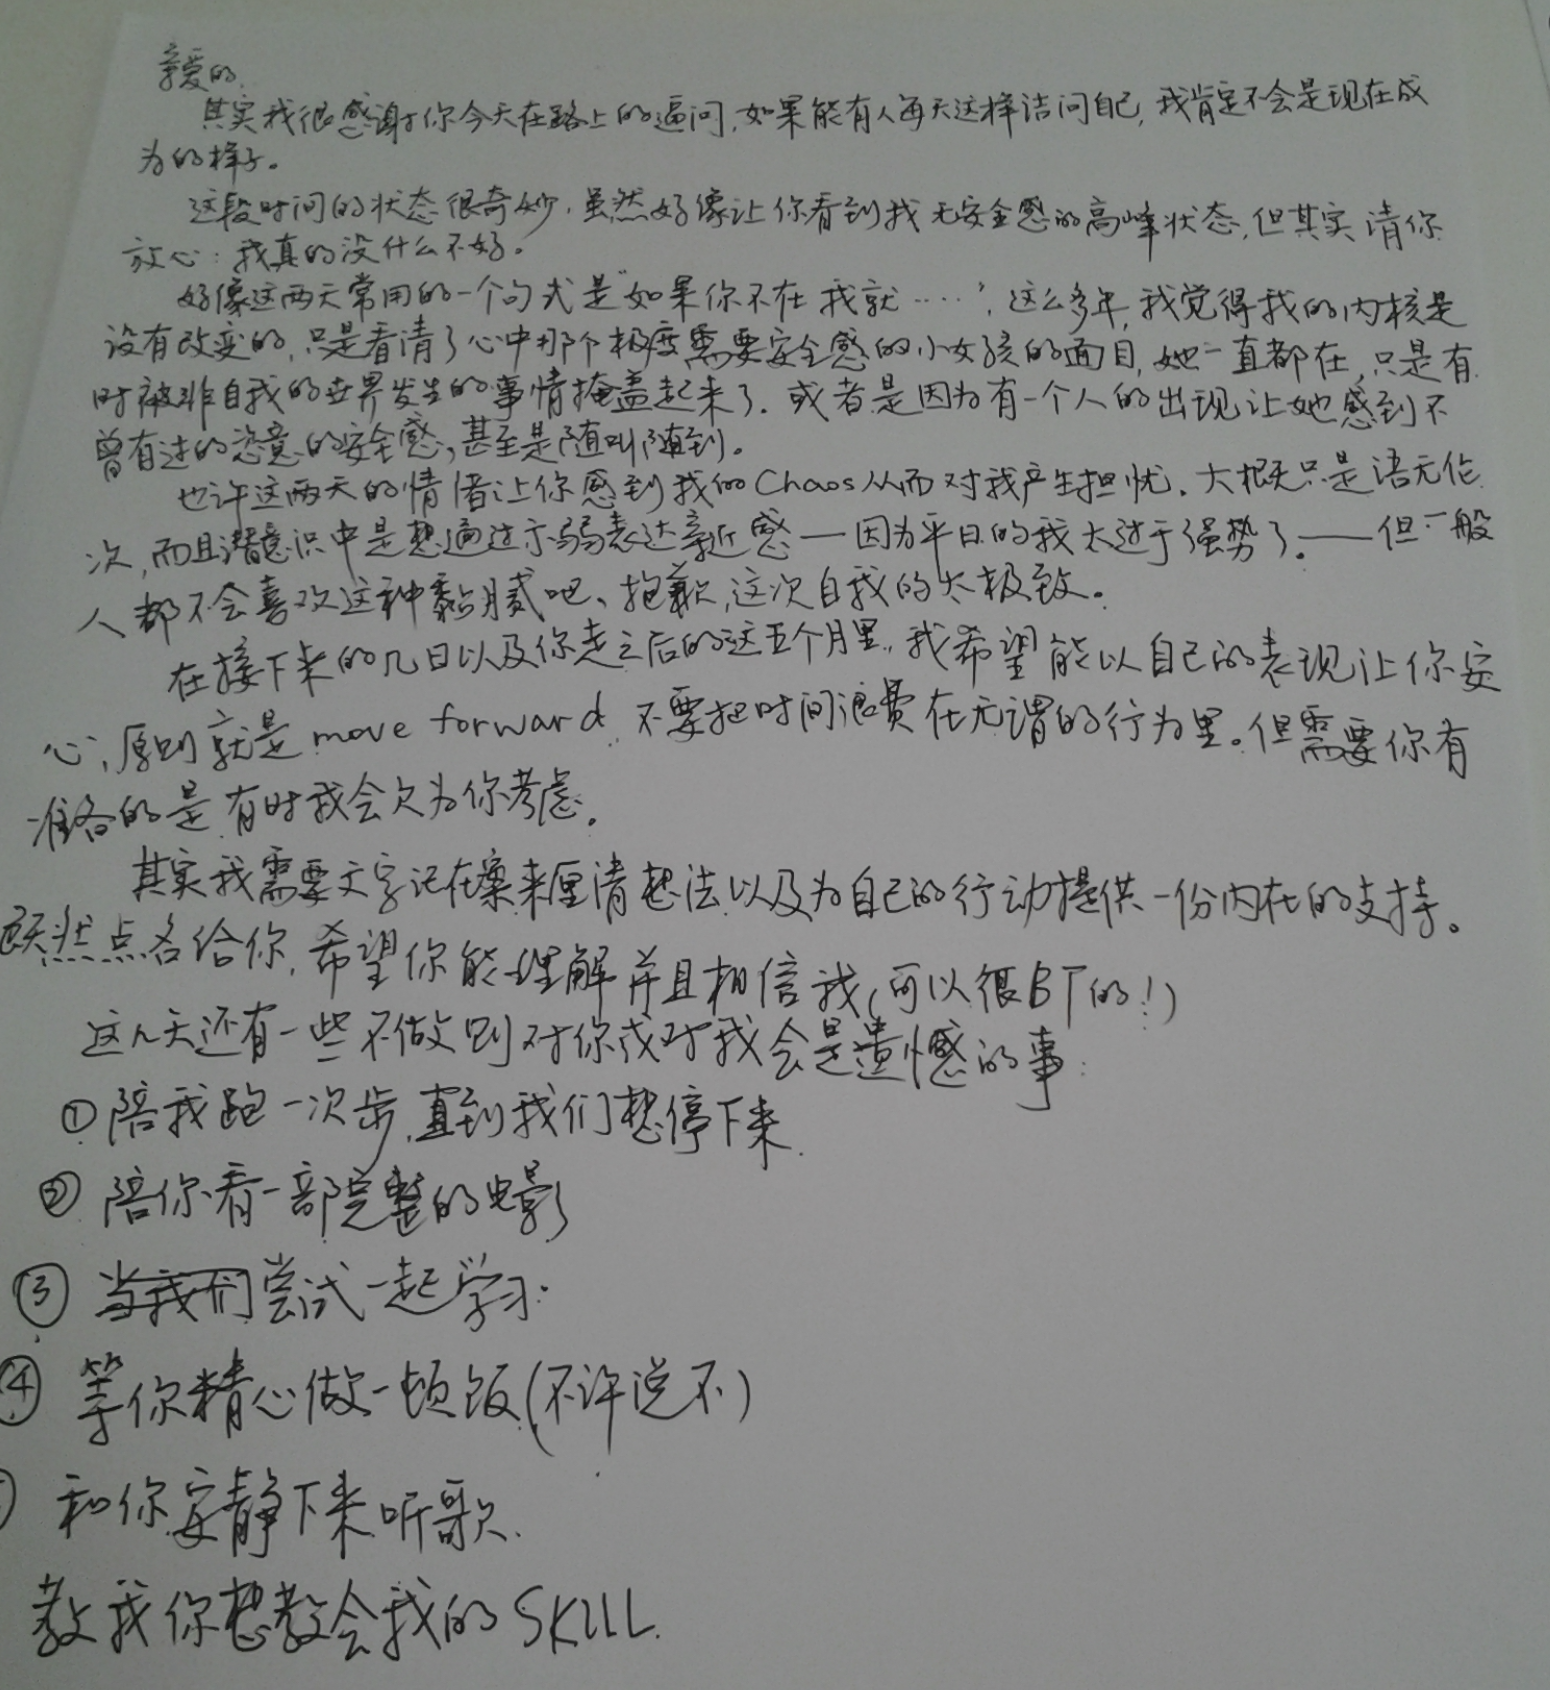 亲爱的,
其实我很感谢你今天在路上的逼问,如果能有人每天这样诘问自己,我肯定不会是现在成
为的样子。
这段时间的状态很奇妙,虽然好像让你看到我无安全感的高峰状态,但其实请你
放心:我真的没什么不好。
好像这两天常用的一个句式是“如果你不在我就……”,这么多年,我觉得我的内核是
没有改变的,只是看清了心中那个极度需要安全感的小女孩的面目,她一直都在,只是有
时被非自我的世界发生的事情掩盖起来了.或者是因为有一个人的出现让她感到不
曾有过的恣意的安全感,甚至是随叫随到。
也许这两天的情绪让你感到我的Chaos从而对我产生担忧.大概只是语无伦
次,而且潜意识中是想通过示弱表达亲近感——因为平日的我太过于强势了.——但一般
人都不会喜欢这种黏腻吧、抱歉,这次自我的太极致。
在接下来的几日以及你走之后的这五个月里,我希望能以自己的表现让你安
心,原则就是move forward,不要把时间浪费在无谓的行为里。但需要你有
准备的是,有时我会欠为你考虑。
其实我需要文字记在案来厘清想法以及为自己的行动提供一份内在的支持。
既然点名给你,希望你能理解并且相信我(可以很BT的!)
这几天还有一些不做则对你或对我会是遗憾的事:
①陪我跑一次步,直到我们想停下来.
②陪你看一部完整的电影
③当我们尝试一起学习.
④等你精心做一顿饭(不许说不)
和你安静下来听歌.
教我你想教会我的SKILL.